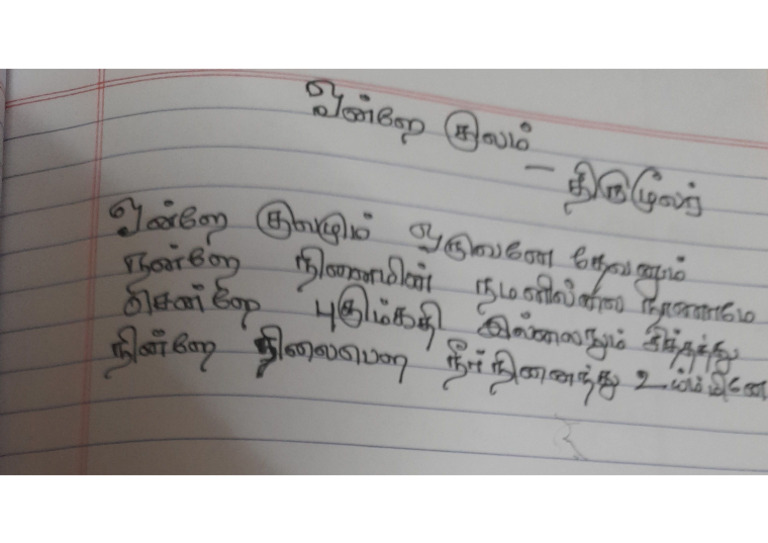 ஒன்றே குலம்
– திருமூலர்
ஒன்றே குலமும் ஒருவனே தேவனும்
நன்றே நினைமின் நமனில்லை நாணாமே
சென்றே புகும்கதி இல்லைநும் சித்தத்து
நின்றே நிலைபெற நீர்நினைந்து உய்ம்மினே